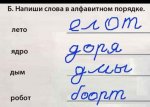 Б. Напиши слова в алфавитном порядке.
лето елот
ядро доря
дым дмы
робот боорт